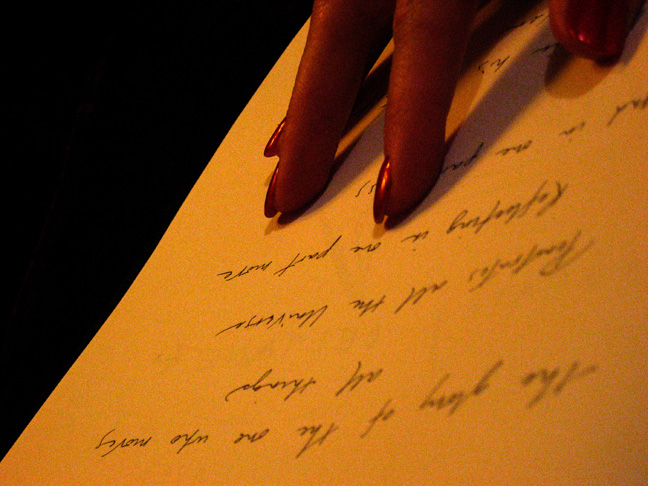 The glory of the one who moves
all things
Penetrates all the Universe
Reflecting in one part more
in one
his